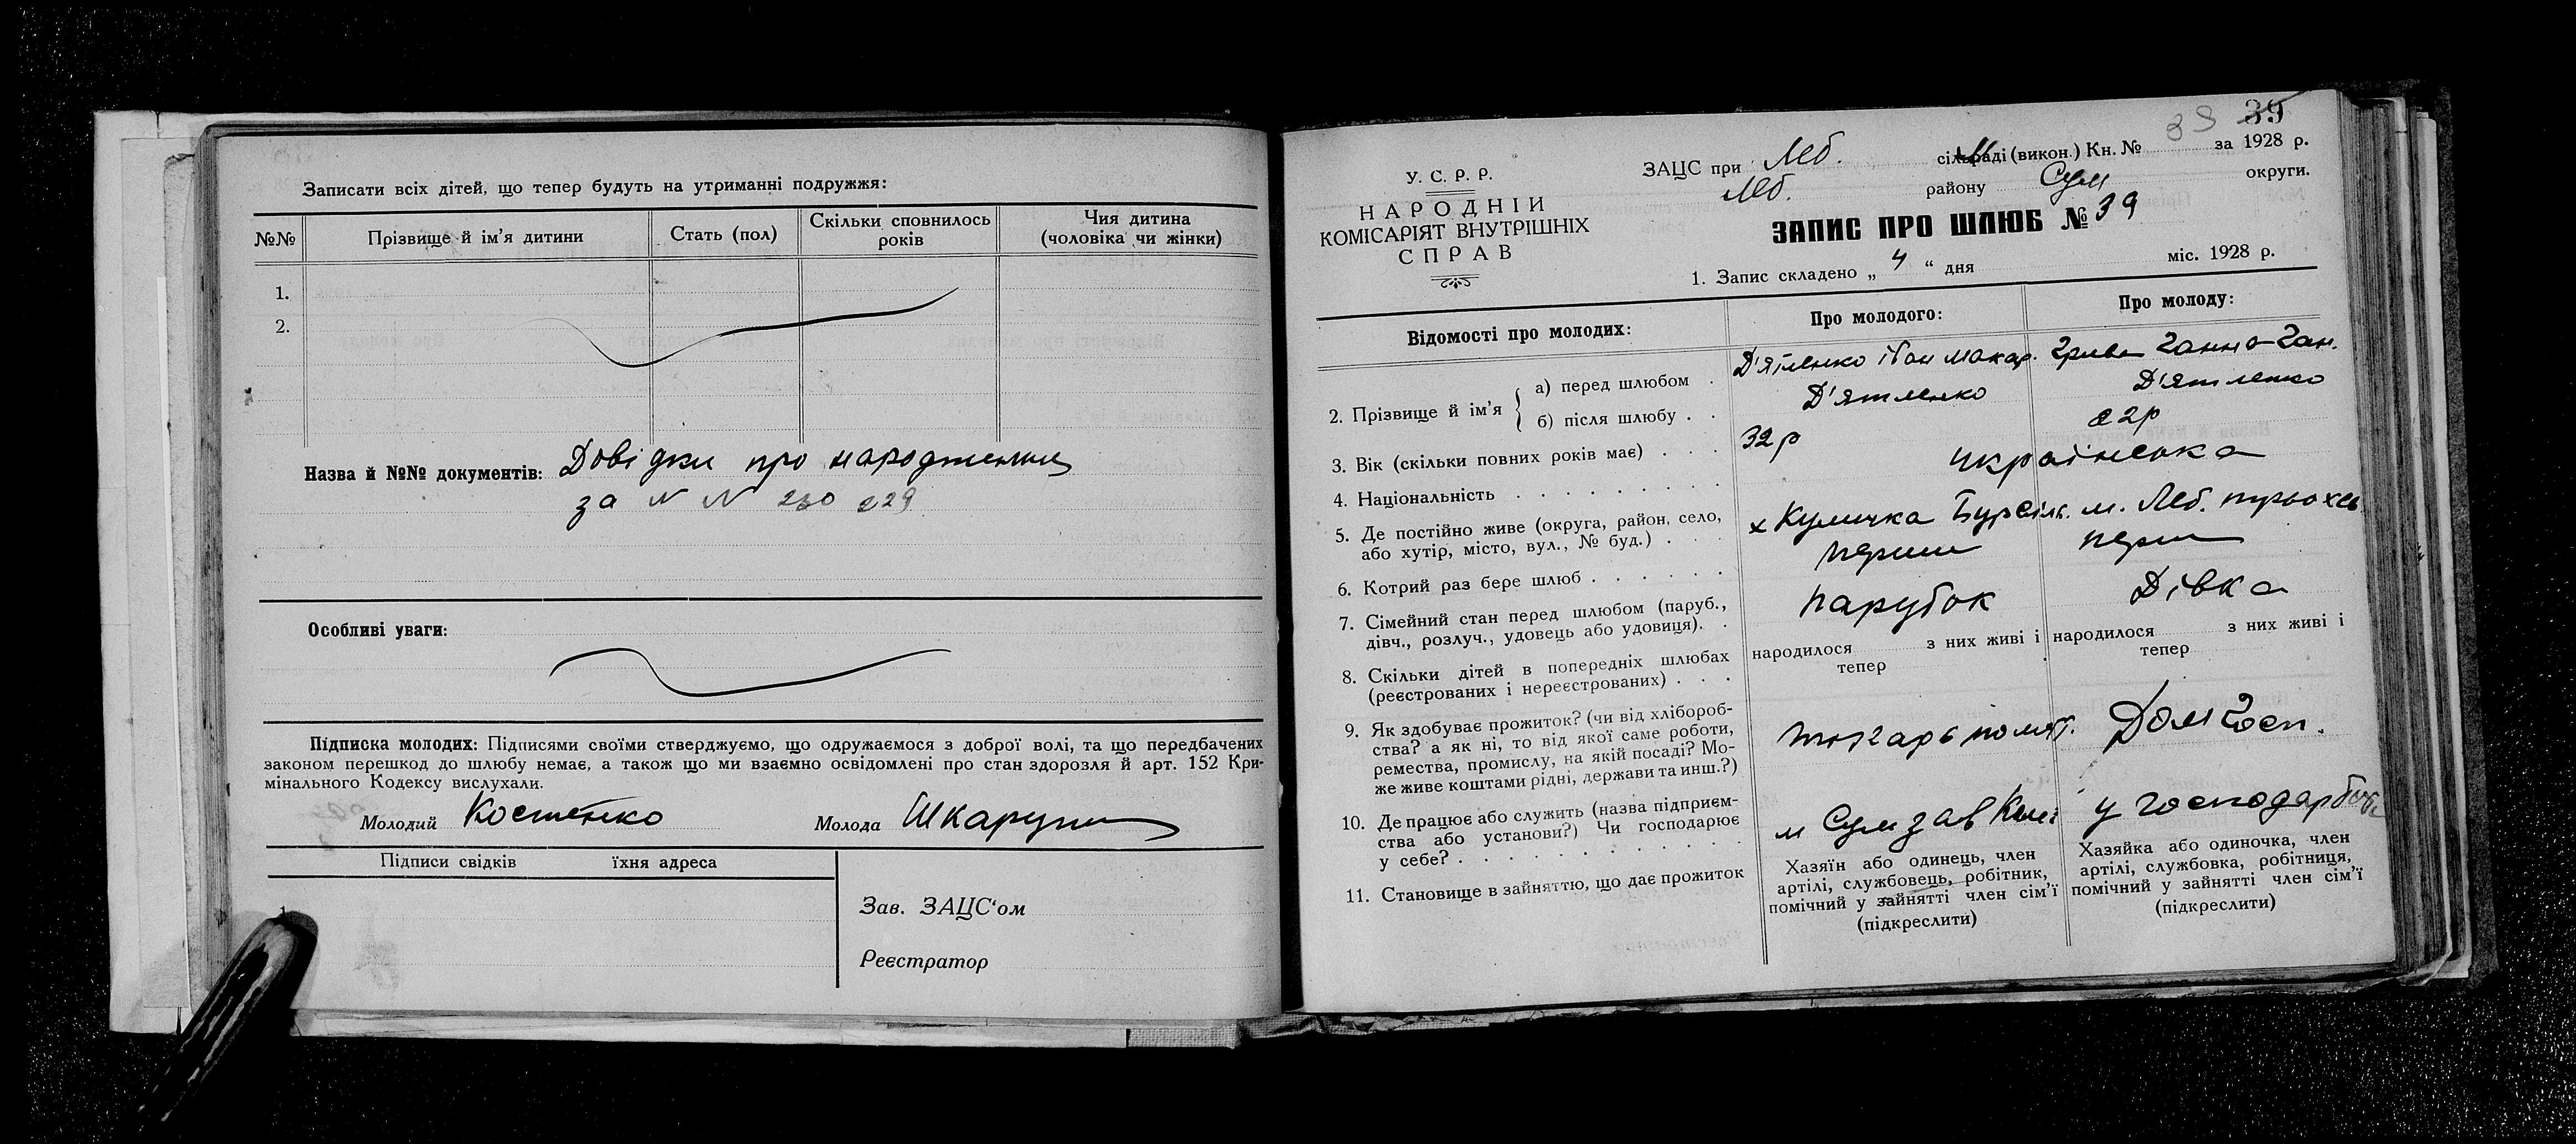 Записати всіх дітей, що тепер будуть на утриманні подружжя:
№№ Прізвище й ім'я дитини Стать (пол) Скільки сповнилось років Чия дитина (чоловіка чи жінки)
1.
2.
Назва й №№ документів: Довідки про народження
за N N 230 229
Особливі уваги:
Підписка молодих: Підписями своїми стверджуємо, що одружаємося з доброї волі, та що передбачених
законом перешкод до шлюбу немає, а також що ми взаємно освідомлені про стан здорозля й арт. 152 Кри-
мінального Кодексу вислухали.
Молодий Костенко Молода Шкарупи
Підписи свідків їхня адреса
1.
Зав. ЗАЦС'ом
Реєстратор
39 39
У. С. Р. Р.
НАРОДНІЙ
КОМІСАРІЯТ ВНУТРІШНІХ
СПРАВ
ЗАЦС при Леб. сільраді (викон.) Кн. № за 1928 р.
Леб. району Сум округи.
ЗАПИС ПРО ШЛЮБ № 39
1. Запис складено „ 4 “ дня міс. 1928 р.
Відомості про молодих: Про молодого: Про молоду:
2. Прізвище й ім'я
а) перед шлюбом . Д'ятленко Іван Макар. Грива Ганна Ган.
б) після шлюбу . . Д'ятленко Д'ятленко
3. Вік (скільки повних років має) . . . 32 р 22р
4. Національність . . . . . . . . . українська
5. Де постійно живе (округа, район, село,
або хутір, місто, вул., № буд.) . . . х Куличка Бурсільк. м. Леб.
6. Котрий раз бере шлюб . . . . . . перший перш
7. Сімейний стан перед шлюбом (паруб.,
дівч., розлуч., удовець або удовиця). . Парубок Дівка
8. Скільки дітей в попередніх шлюбах
(реєстрованих і нереєстрованих) . . .
народилося з них живі і
тепер
народилося з них живі і
тепер
9. Як здобуває прожиток? (чи від хлібороб-
ства? а як ні, то від якої саме роботи,
ремества, промислу, на якій посаді? Мо-
же живе коштами рідні, держави та инш.?)
Дом госп.
10. Де працює або служить (назва підприєм-
ства або установи?) Чи господарює
у себе? . . . . . . . . . . . .
м Сум зав
у господарстві
11. Становище в зайняттю, що дає прожиток
Хазяїн або одинець, член
артілі, службовець, робітник,
помічний у зайнятті член сім'ї
(підкреслити)
Хазяйка або одиночка, член
артілі, службовка, робітниця,
помічний у зайнятті член сім'ї
(підкреслити)